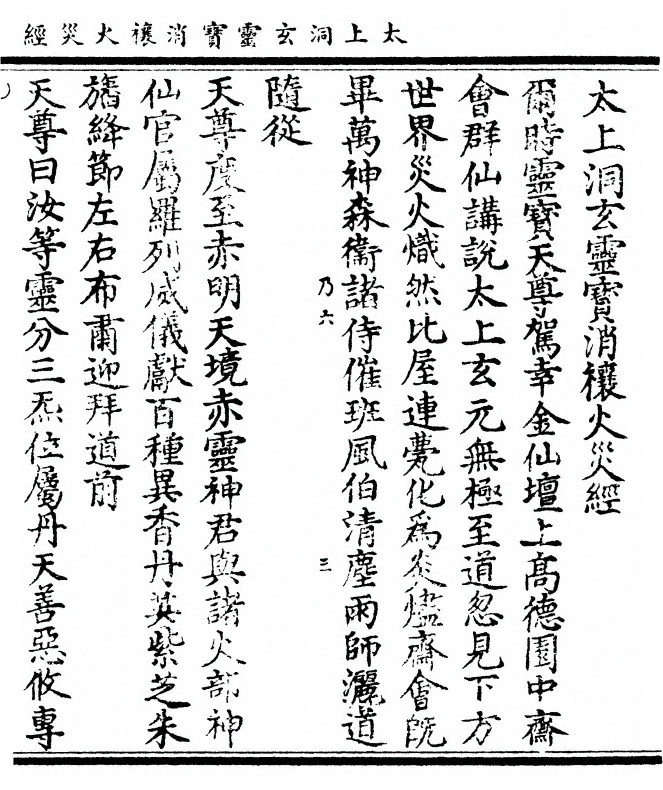 太上洞玄靈寶消禳火災經
太上洞玄靈寶消禳火災經
爾時靈寶天尊駕幸金仙壇上高德園中齋
會群仙講說太上玄元無極至道忽見下方
世界災火熾然比屋連甍化為炎燼齋會既
畢萬神森衛諸侍催班風伯清塵雨師灑道
乃六
三
隨從
天尊度至赤明天境赤靈神君與諸火部神
仙官屬羅列威儀獻百種異香丹英紫芝朱
旛絳節左右布肅迎拜道前
天尊曰汝等靈分三炁位屬丹天善惡攸專